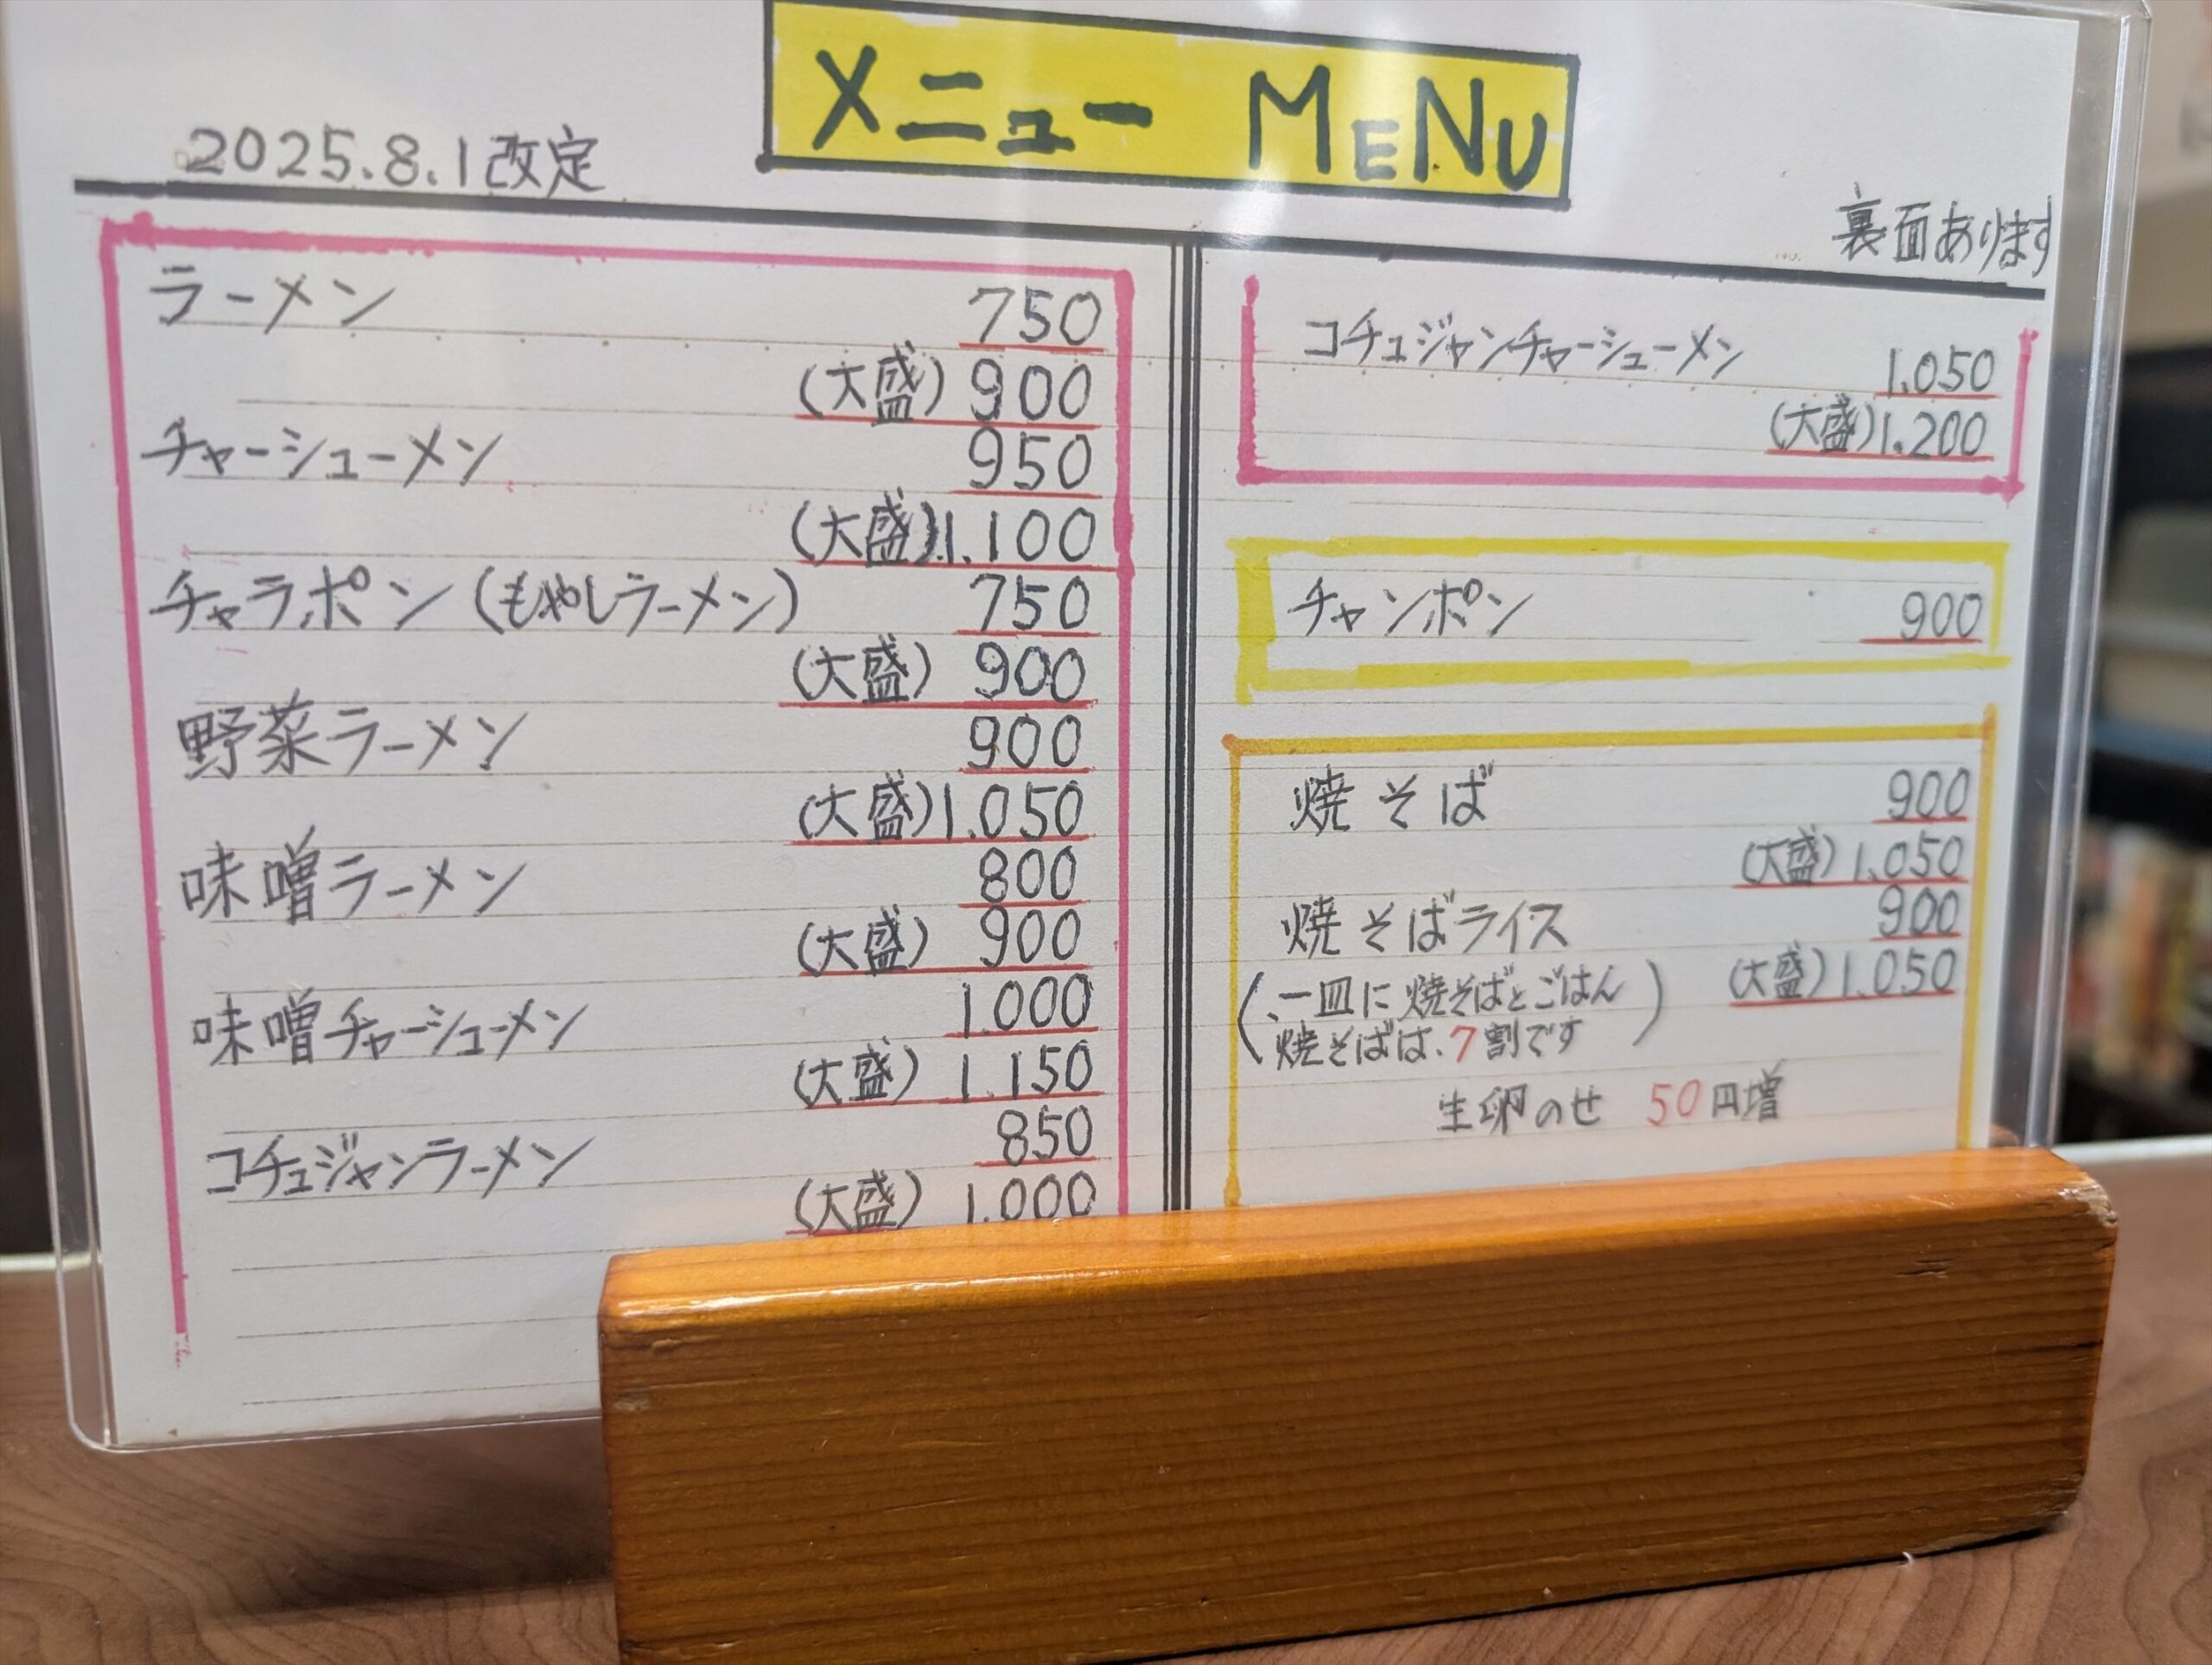 メニュー MENU
2025.8.1改定
裏面あります
ラーメン 750
(大盛) 900
チャーシューメン 950
(大盛) 1.100
チャラポン(もやしラーメン) 750
(大盛) 900
野菜ラーメン 900
(大盛) 1.050
味噌ラーメン 800
(大盛) 900
味噌チャーシューメン 1.000
(大盛) 1.150
コチュジャンラーメン 850
(大盛) 1.000
コチュジャンチャーシューメン 1.050
(大盛) 1.200
チャンポン 900
焼そば 900
(大盛) 1.050
焼そばライス 900
(大盛) 1.050
(、一皿に焼そばとごはん
焼そばは、7割です)
生卵のせ 50円増